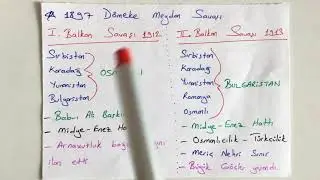 1897 Dömeke Meydan Savaşı
I. Balkan Savaşı 1912
Sırbistan
Karadağ
Yunanistan
Bulgaristan
OSM
- Bab-ı Ali Baskı
- Midye-Enez Ha
- Arnavutluk
ilan etti
II. Balkan Savaşı 1913
Sırbistan
Karadağ
Yunanistan
Romanya
Osmanlı
BULGARİSTAN
- Midye-Enez Hattı
- Osmanlıcılık - Türkçülük
- Meriç Nehri Sınır
- Büyük Göçler